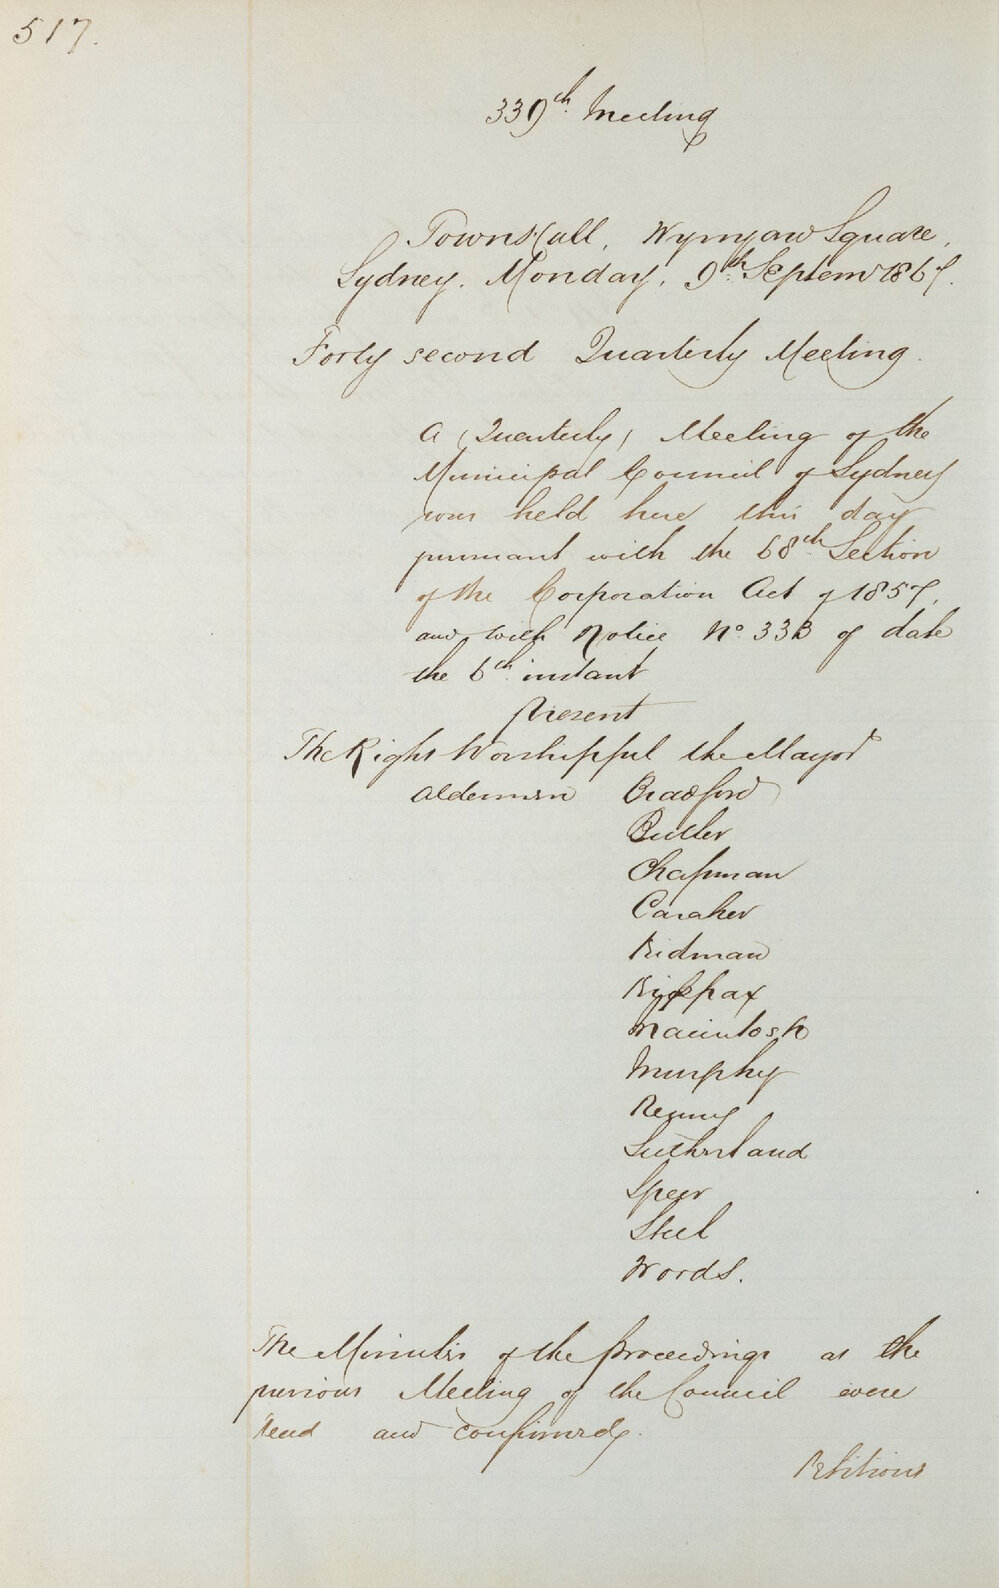 517.
339th Meeting
Town Hall, Wynyard Square,
Sydney. Monday, 9th Septemr 1867.
Forty second Quarterly Meeting.
A (Quarterly) Meeting of the
Municipal Council of Sydney
was held here this day
pursuant with the 68th Section
of the Corporation Act of 1857,
and with Notice No. 33B of date
the 6th instant
Present
The Right Worshipful the Mayor
Aldermen Bradford
Butler
Chapman
Caraher
Kidman
Kippax
Macintosh
Murphy
Renny
Sutherland
Speer
Steel
Woods.
The Minutes of the Proceedings at the
previous Meeting of the Council were
read and confirmed.
Petitions